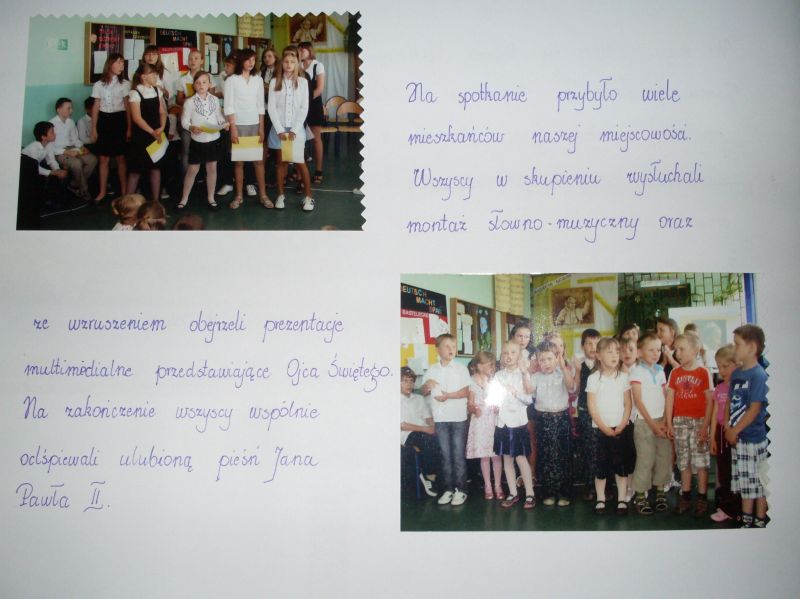 Na spotkanie przybyło wiele
mieszkańców naszej miejscowości.
Wszyscy w skupieniu wysłuchali
montaż słowno-muzyczny oraz
ze wzruszeniem obejrzeli prezentacje
multimedialne przedstawiające Ojca Świętego.
Na zakończenie wszyscy wspólnie
odśpiewali ulubioną pieśń Jana
Pawła II.
DEUTSCH
MACHT
SPAß
DEUTSCH
MACHT
SPAß